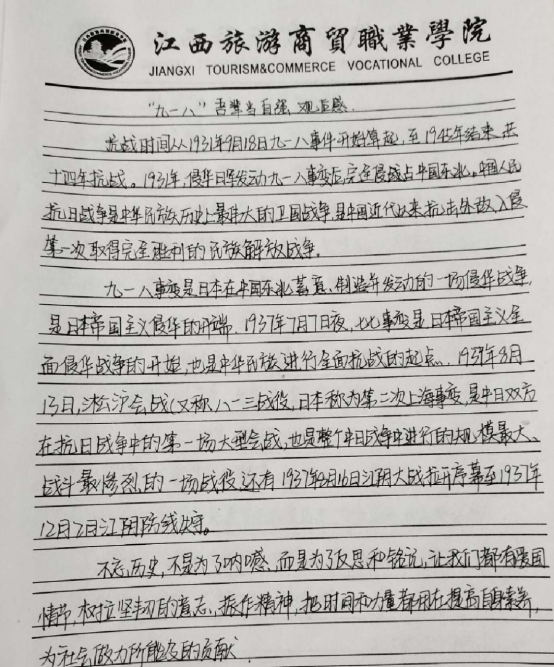 江西旅游商貿職業學院
JIANGXI TOURISM&COMMERCE VOCATIONAL COLLEGE
"九一八"吾辈当自强 观后感.
抗战时间从1931年9月18日九一八事件开始算起,至1945年结束,共
十四年抗战。1931年,侵华日军发动九一八事变后,完全侵占中国东北。中国人民
抗日战争是中华民族历史上最伟大的卫国战争,是中国近代以来抗击外敌入侵
第一次取得完全胜利的民族解放战争。
九一八事变是日本在中国东北蓄意、制造并发动的一场侵华战争,
是日本帝国主义侵华的开端。1937年7月7日夜,七七事变是日本帝国主义全
面侵华战争的开始,也是中华民族进行全面抗战的起点。1937年8月
13日,淞沪会战(又称八一三战役,日本称为第二次上海事变,是中日双方
在抗日战争中的第一场大型会战,也是整个中日战争中进行的规模最大、
战斗最惨烈的一场战役还有1937年8月16日江阴大战拉开序幕至1937年
12月2日江阴防线失守。
不忘历史,不是为了呐喊,而是为了反思和铭记,让我们都有爱国
情节,树立坚韧的意志、振作精神,把时间和力量都用在提高自身素养,
为社会做力所能及的贡献